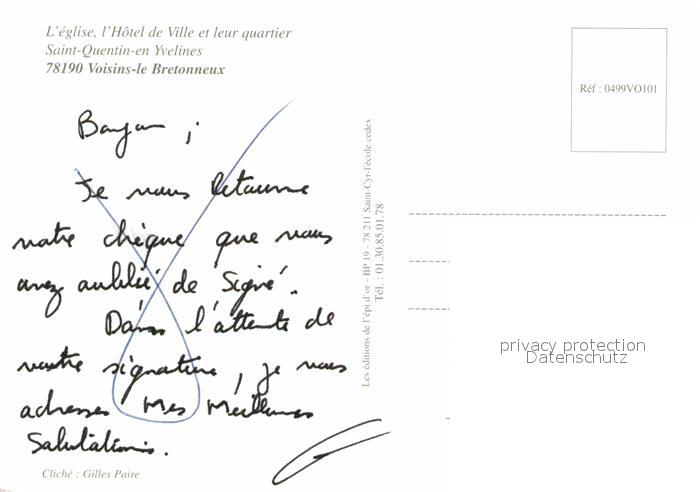 L'église, l'Hôtel de Ville et leur quartier
Saint-Quentin-en Yvelines
78190 Voisins-le Bretonneux
Réf : 0499VO101
Bonjour ;
Je vous retourne
votre chèque que vous
avez oublié de signé.
Dans l'attente de
votre signature, je vous
adresses Mes Meilleures
Salutations.
Cliché : Gilles Paire
Les éditions de l'épi d'or - BP 19 - 78 211 Saint-Cyr-l'école cedex
Tél. : 01.30.85.01.78
privacy protection
Datenschutz